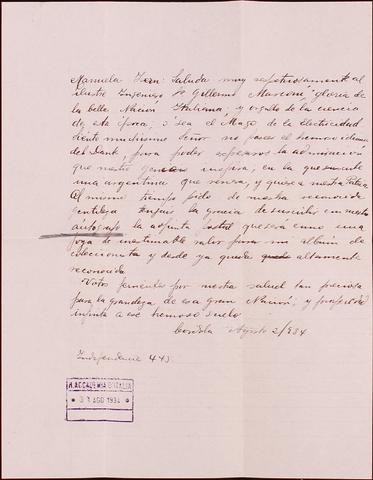 Manuela Saluda muy respetuosamente al
ilustre Ingeniero Dr Guillermo Marconi, gloria de
la bella Nación Italiana; y orgullo de la ciencia
de esta época; o sea el Mago de la Electricidad
siento muchísimo Señor no poseer el hermoso idioma
del Dante, para poder expresaros la admiración
que vuestro genio inspira, en la que suscribe
una argentina que venera, y quiere a vuestra Patria
Al mismo tiempo pido de vuestra reconocida
gentileza la gracia de suscribir en vuestro
autógrafo la adjunta postal que será como una
joya de inestimable valor para mi álbum de
coleccionista y desde ya queda altamente
reconocida
Votos por vuestra salud tan preciosa
para la grandeza de esa Gran Nación; y prosperidad
infinita a ese hermoso suelo
Córdoba Agosto 2/934
Independencia 443
R. ACCADEMIA D'ITALIA
AGO 1934